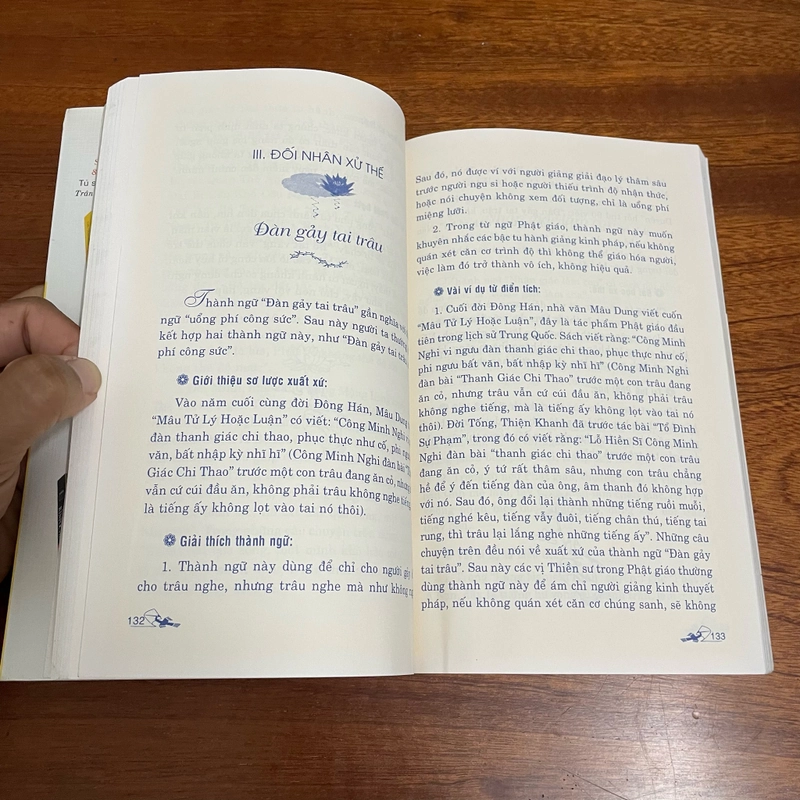 III. ĐỐI NHÂN XỬ THẾ
Đàn gảy tai trâu
Thành ngữ “Đàn gảy tai trâu” gần nghĩa với
ngữ “uổng phí công sức”. Sau này người ta thường
kết hợp hai thành ngữ này, như “Đàn gảy tai trâu
phí công sức”.
Giới thiệu sơ lược xuất xứ:
Vào năm cuối cùng đời Đông Hán, Mâu Dung
“Mâu Tử Lý Hoặc Luận” có viết: “Công Minh Nghi vị
đàn thanh giác chi thao, phục thực như cố, phi ngưu
văn, bất nhập kỳ nhĩ hĩ” (Công Minh Nghi đàn bài
Giác Chi Thao” trước một con trâu đang ăn cỏ, nhưng
vẫn cứ cúi đầu ăn, không phải trâu không nghe tiếng,
là tiếng ấy không lọt vào tai nó thôi).
Giải thích thành ngữ:
1. Thành ngữ này dùng để chỉ cho người gảy
cho trâu nghe, nhưng trâu nghe mà như không
132
Sau đó, nó được ví với người giảng giải đạo lý thâm sâu
trước người ngu si hoặc người thiếu trình độ nhận thức,
hoặc nói chuyện không xem đối tượng, chỉ là uổng phí
miệng lưỡi.
2. Trong từ ngữ Phật giáo, thành ngữ này muốn
khuyên nhắc các bậc tu hành giảng kinh pháp, nếu không
quán xét căn cơ trình độ thì không thể giáo hóa người,
việc làm đó trở thành vô ích, không hiệu quả.
Vài ví dụ từ điển tích:
1. Cuối đời Đông Hán, nhà văn Mâu Dung viết cuốn
“Mâu Tử Lý Hoặc Luận”, đây là tác phẩm Phật giáo đầu
tiên trong lịch sử Trung Quốc. Sách viết rằng: “Công Minh
Nghi vị ngưu đàn thanh giác chi thao, phục thực như cố,
phi ngưu bất văn, bất nhập kỳ nhĩ hĩ” (Công Minh Nghi
đàn bài “Thanh Giác Chi Thao” trước một con trâu đang
ăn cỏ, nhưng trâu vẫn cứ cúi đầu ăn, không phải trâu
không nghe tiếng, mà là tiếng ấy không lọt vào tai nó
thôi). Đời Tống, Thiện Khanh đã trước tác bài “Tổ Đình
Sự Phạm”, trong đó có viết rằng: “Lỗ Hiền Sĩ Công Minh
Nghi đàn bài “thanh giác chi thao” trước một con trâu
đang ăn cỏ, ý tứ rất thâm sâu, nhưng con trâu chẳng
hề để ý đến tiếng đàn của ông, âm thanh đó không hợp
với nó. Sau đó, ông đổi lại thành những tiếng ruồi muỗi,
tiếng nghé kêu, tiếng vẫy đuôi, tiếng chân thú, tiếng tai
rung, thì trâu lại lắng nghe những tiếng ấy”. Những câu
chuyện trên đều nói về xuất xứ của thành ngữ “Đàn gảy
tai trâu”. Sau này các vị Thiền sư trong Phật giáo thường
dùng thành ngữ này để ám chỉ người giảng kinh thuyết
pháp, nếu không quán xét căn cơ chúng sanh, sẽ không
133